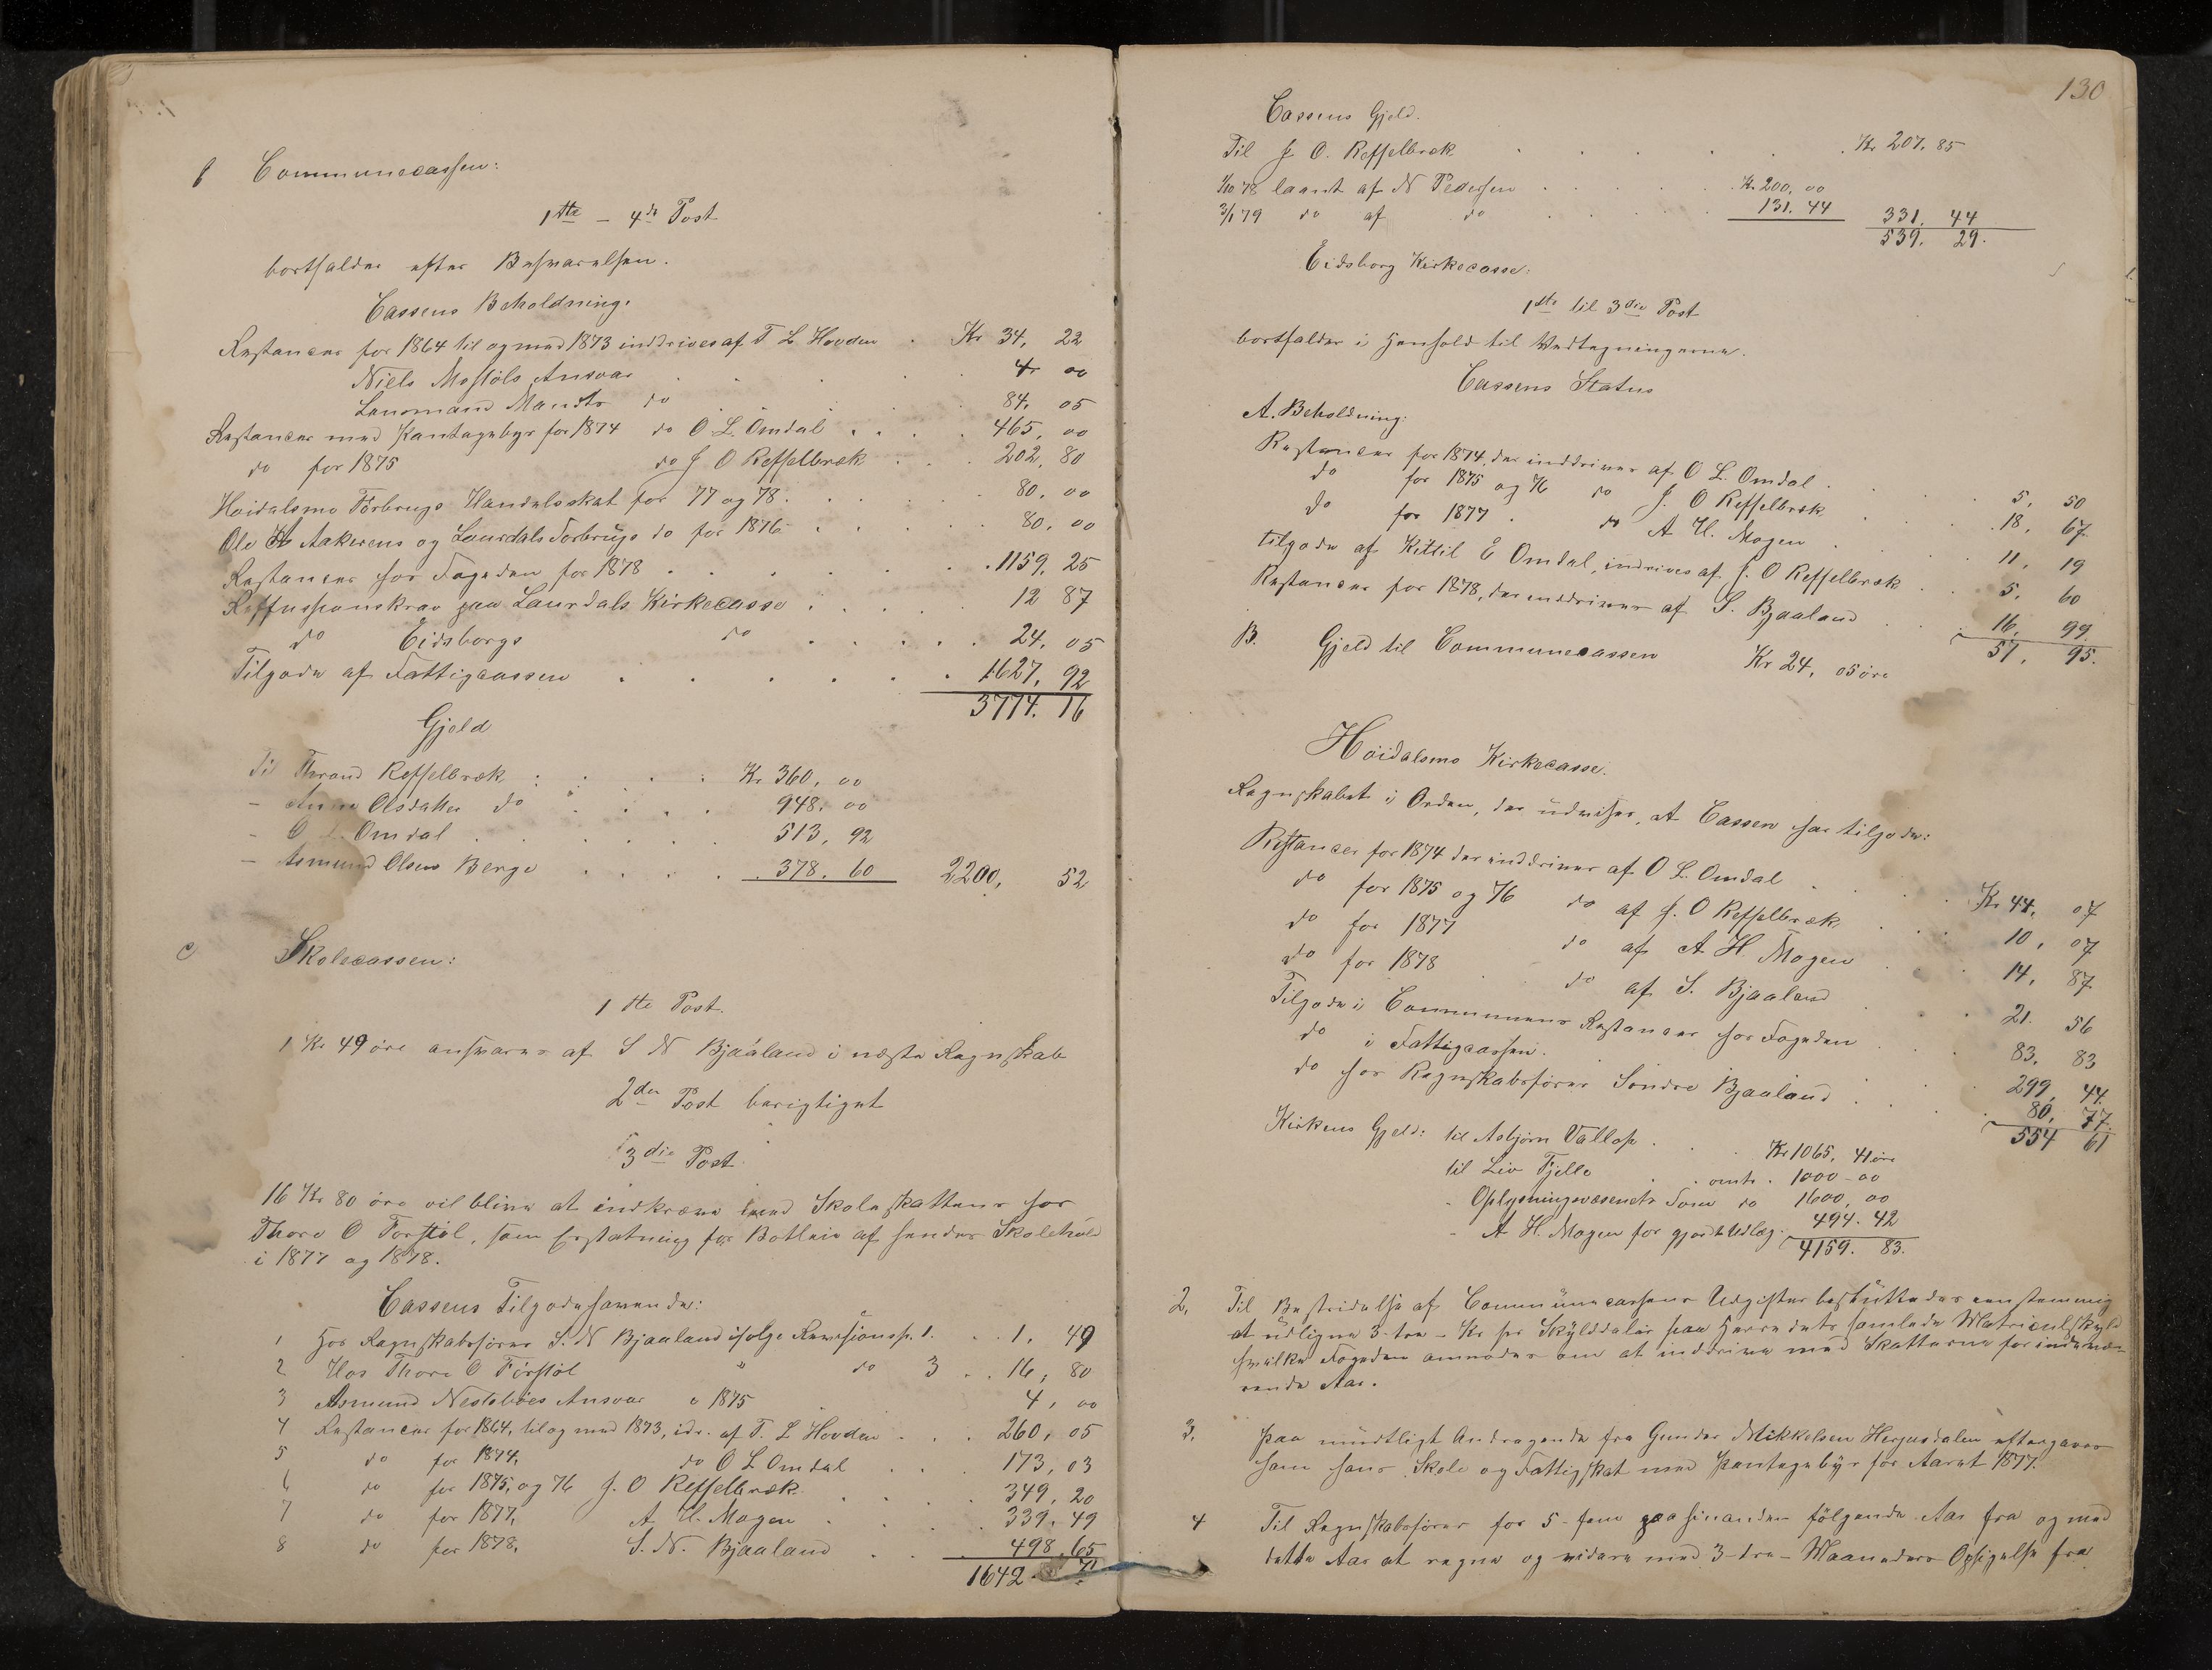 b Communecassen:
1ste – 4de Post
bortfalder efter Besvarelsen.
Cassens Beholdning.
Restancer for 1864 til og med 1873 inddrives af T L Hovden . Kr 34, 22
Niels Mostøls Ansvar . . . 4 00
Lensmand Mandts do . . . 84. 05
Restancer med Pantegebyr for 1874 do O L. Omdal . . . 465, 00
do for 1875 do J O Reffelbræk . . . 202, 80
Høidalsmo Forbrugs Handelsskat for 77 og 78. . . . 80. 00
Ole Aakerens og Laurdals Forbrugs do for 1876 . . . 80. 00
Restancer hos Fogeden for 1878 . . . 1159, 25
Refusionskrav paa Laurdals Kirkecasse . . . 12 87
do Eidsborgs do . . . 24. 05
Tilgode af Fattigcassen . . . 1627, 92
3774. 16
Gjeld
Til Thrond Reffelbræk . . . Kr 360, 00
– Anne Olsdatter do . . . 948. 00
– O L. Omdal . . . 513, 92
– Asmund Olsen Berge . . . 378. 60 2200, 52
c Skolecassen:
1ste Post.
1 Kr 49 øre ansvares af S N Bjaaland i næste Regnskab
2den Post berigtiget
3die Post
16 Kr 80 øre vil blive at indkræve med Skoleskatten hos
Thore O Forstöl, som Erstatning for Botleie af hendes Skolehold
i 1877 og 1878.
Cassens Tilgodehavende:
1 Hos Regnskabsfører S. N Bjaaland ifølge Revisionsp. 1. . . 1. 49
2 Hos Thore O Förstöl " do 3 . . 16, 80
3 Asmund Nesteböes Ansvar 1875 . 4, 00
4 Restancer for 1864, til og med 1873, idr. af T. L Hovden . . . 260, 05
5 do for 1874, do O L Omdal . . . 173, 03
6 do for 1875, og 76 J. O Reffelbræk . . . 349, 20
7 do for 1877, A H. Mogen . . . 339. 49
8 do for 1878, S. N. Bjaaland . . . 498, 65
1642. 71
130
Cassens Gjeld.
Til J O. Reffelbræk . . . Kr 207. 85
1/10 78 laant af N Pedersen . . . Kr. 200, 00
3/1 79 do af do . . . 131. 44 331, 44
539. 29.
Eidsborg Kirkecasse:
1ste til 3die Post
bortfalder i Henhold til Vedtegningerne.
Cassens Status
A. Beholdning:
Restancer for 1874, der inddrives af O L. Omdal . . . 5, 50
do for 1875 og 76 do J. O Reffelbræk . . . 18, 67
do for 1877 . do A H. Mogen . . . 11, 19
tilgode af Kittil E Omdal, indrives af J. O Reffelbræk . . 5, 60
Restancer for 1878, der inddrives af S. Bjaaland . . . 16, 99
57, 95.
B. Gjeld til Communecassen Kr 24, 05 øre
Høidalsmo Kirkecasse.
Regnskabet i Orden, der udviser, at Cassen har tilgode:
Restancer for 1874 der inddrives af O L. Omdal . . . Kr 44, 07
do for 1875 og 76 do af J. O Reffelbræk . . . 10, 07
do for 1877 do af A H Mogen . . . 14, 87
do for 1878 do af S. Bjaaland . . . 21. 56
Tilgode i Communens Restancer hos Fogeden . . . 83, 83
do i Fattigcassen . . . 299, 44.
do hos Regnskabsfører Söndre Bjaaland . . . 80, 77.
554 61
Kirkens Gjeld: til Asbjørn Vallop . . . Kr 1065, 41 øre
til Liv Fjelle . . omtr. 1000 – 00
Oplysningsvæsenets Fom do 1600, 00
– A H. Mogen for gjordt Udlæg. 494. 42
4159. 83.
2, Til Bestridelse af Communecassens Udgifter besluttedes eenstemmig
at udligne 3 – tre – Kr pr Skylddaler paa Herredets samlede Matriculskyld
hvilke Fogeden anmodes om at inddrive med Skatterne for indeværende
Aar.
3. Paa mundtligt Andragende fra Gunder Mikkelsen Herjusdalen eftergaves
ham hans Skole og Fattigskat med Pantegebyr for Aaret 1877.
4 Til Regnskabsfører for 5 – fem paa hinanden følgende Aar fra og med
dette Aar at regne og videre med 3 – tre – Maaneders Opsigelse fra